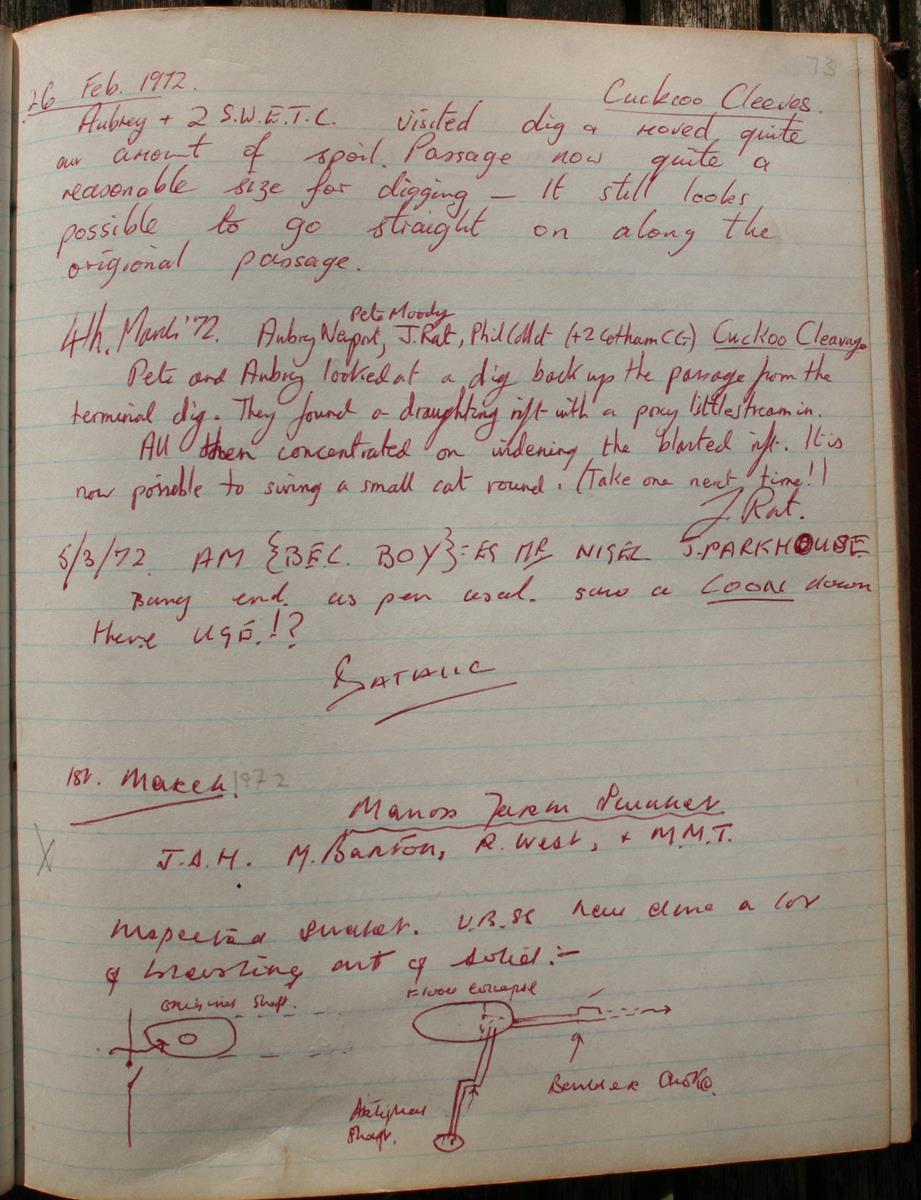 73
26 Feb. 1972. Cuckoo Cleeves.
Aubrey + 2 S.W.E.T.C. visited dig & moved quite
an amount of spoil. Passage now quite a
reasonable size for digging — It still looks
possible to go straight on along the
origional passage.
Pete Moody
4th. March '72. Aubrey Newport, J. Rat, Phil Collett (+2 Cotham CG) Cuckoo Cleavage
Pete and Aubrey looked at a dig back up the passage from the
terminal dig. They found a draughting rift with a poxy little stream in.
All then concentrated on widening the blasted rift. It is
now possible to swing a small cat round. (Take one next time!)
J. Rat.
5/3/72. AM {B.E.C. BOY} = ES MR NIGEL J. PARKHOUSE
Bang end. as per usal. saw a down
there UGE.!?
1st. March. 1972
Manor Farm Swallet
X
J.A.H. M. Barton, R. West, + M.M.T.
Inspected swallet. U.B.SS have done a lot
of blasting out of solid:—
Floor collapse
Entrance shaft.
Boulder Choke
Artificial
Shaft.